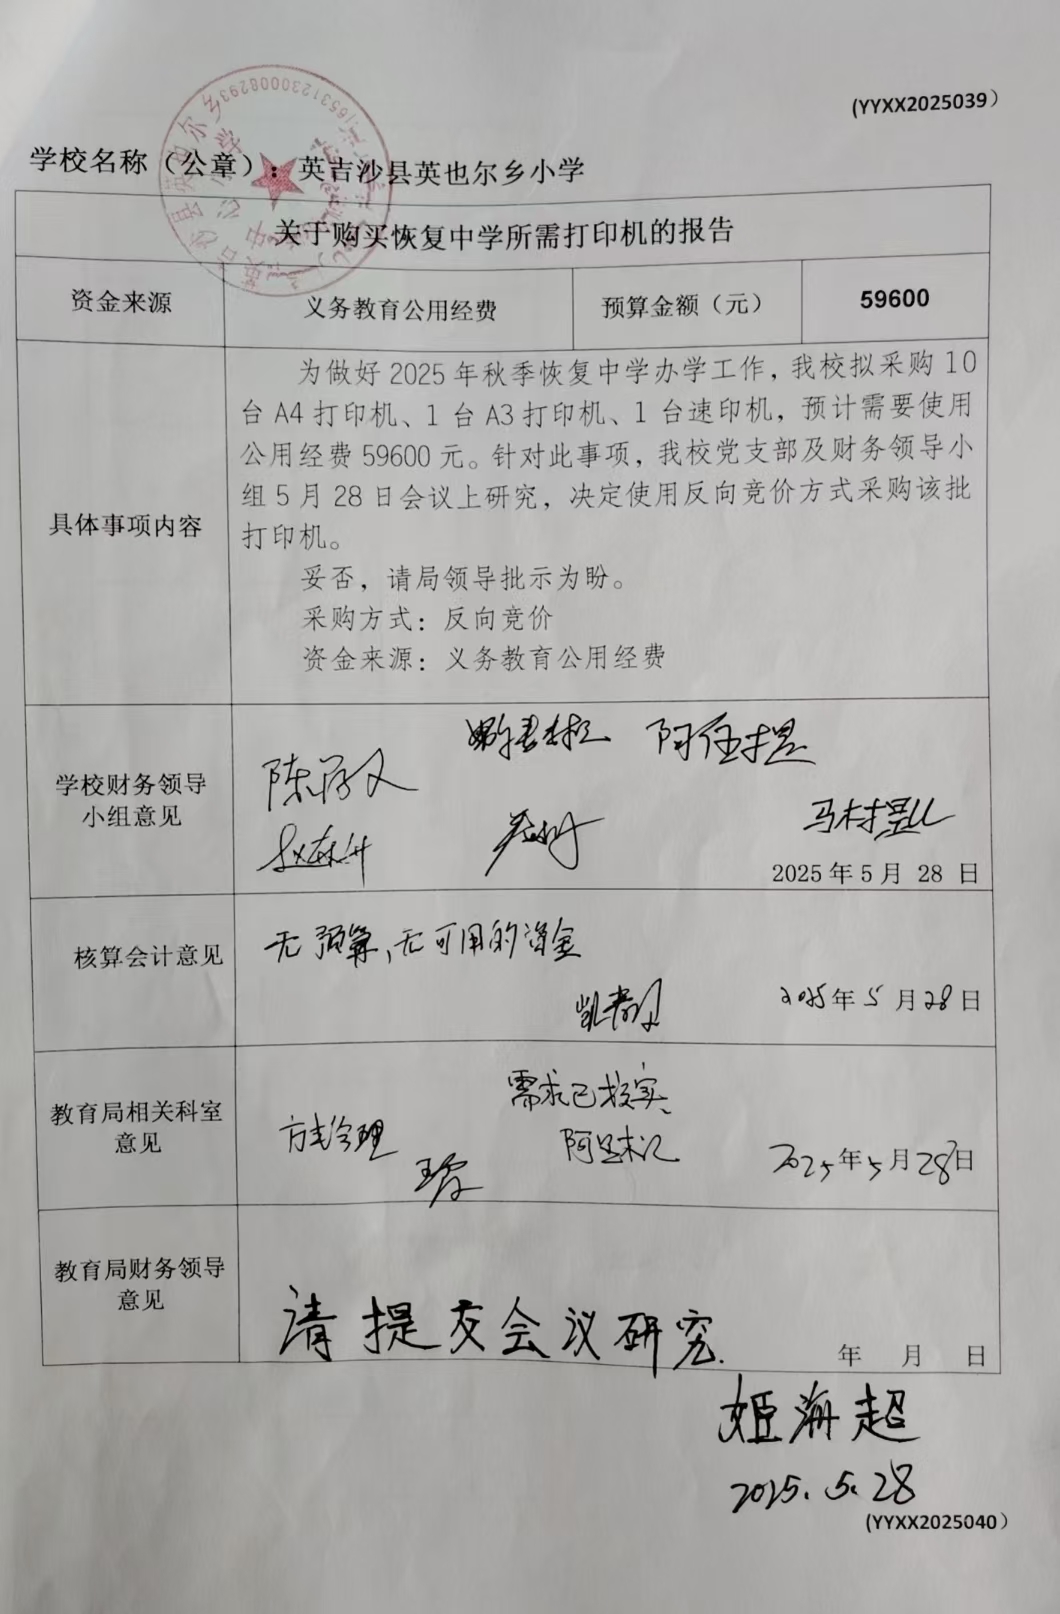 (YYXX2025039）
学校名称（公章）：英吉沙县英也尔乡小学
关于购买恢复中学所需打印机的报告
资金来源 义务教育公用经费 预算金额（元） 59600
为做好 2025 年秋季恢复中学办学工作，我校拟采购 10
台 A4 打印机、1 台 A3 打印机、1 台速印机，预计需要使用
公用经费 59600 元。针对此事项，我校党支部及财务领导小
组 5 月 28 日会议上研究，决定使用反向竞价方式采购该批
打印机。
具体事项内容
妥否，请局领导批示为盼。
采购方式：反向竞价
资金来源：义务教育公用经费
学校财务领导
小组意见
2025 年 5 月 28 日
核算会计意见
无预算,无可用的资金
2025年 5 月 28 日
教育局相关科室
意见
需求已核实
2025年 5 月 28日
教育局财务领导
意见
请提交会议研究.
年 月 日
姬海超
2025.5.28
(YYXX2025040）